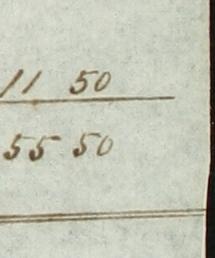 11 50
55 50